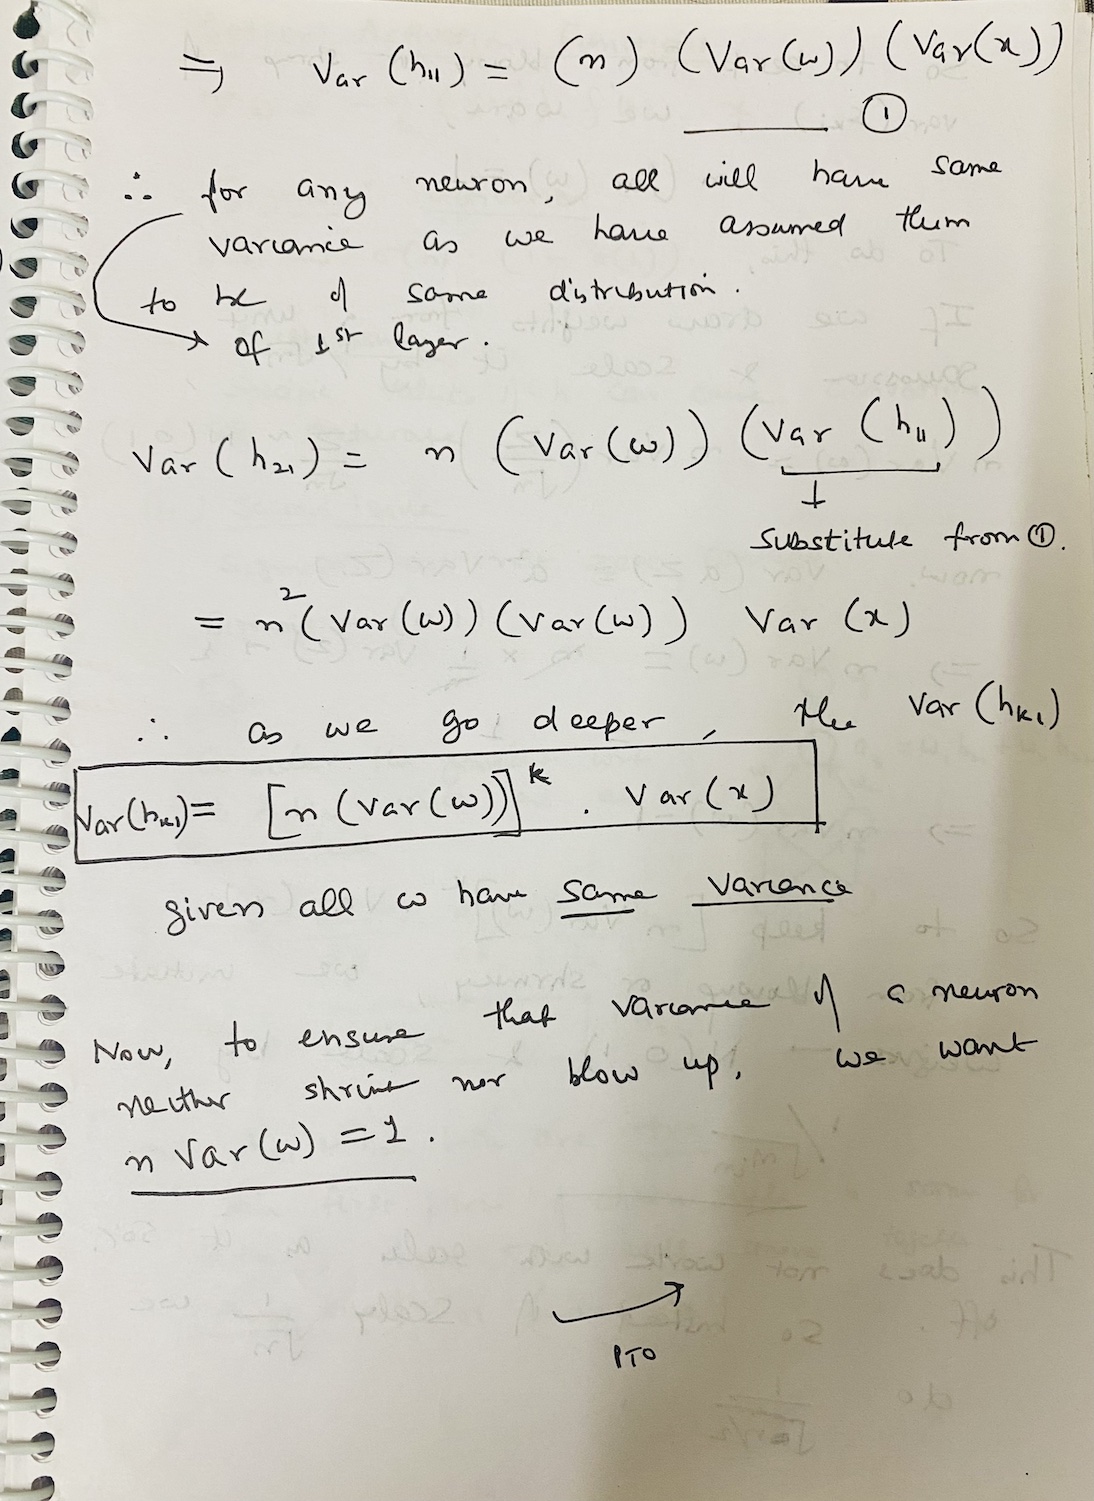 ⇒ Var (h₁₁) = (n) (Var(w)) (Var(x))
①
∴ for any neuron, all will have same
variance as we have assumed them
to be of same distribution.
of 1st layer.
Var (h₂₁) = n (Var(w)) (Var (h₁₁))
↓
substitute from ①.
= n² (Var(w)) (Var(w)) Var (x)
∴ as we go deeper, the Var (hₖ₁)
Var(hₖ₁) = [n (Var(w))]ᵏ . Var(x)
given all w have same variance
Now, to ensure that variance of a neuron
neither shrink nor blow up, we want
n Var(w) = 1.
PTO